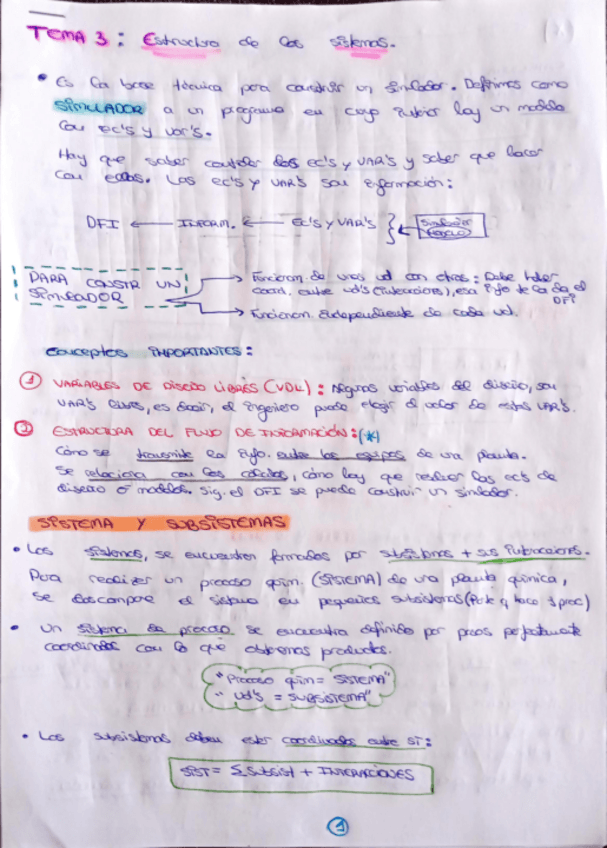 TEMA 3: Estructura de los sistemas.
• Es la base técnica para construir un simulador. Definimos como
SIMULADOR a un programa en cuyo interior hay un modelo
con ec's y var's.
Hay que saber controlar las ec's y VAR's y saber que hacer
con ellas. Las ec's y VAR's son información:
DFI ← INFORM. ← EC'S Y VAR'S } ← Simulador
PARA CONSTR UN
SIMULADOR
→ Funcionam. de unas ud con otras: Debe haber
coord. entre ud's (interacciones), esa info te la da el
DFI
→ Funcionam. independiente de cada ud.
CONCEPTOS IMPORTANTES:
① VARIABLES DE DISEÑO LIBRES (VDL): Algunas variables del diseño, son
VAR's libres, es decir, el ingeniero puede elegir el valor de estas VAR's.
② ESTRUCTURA DEL FLUJO DE INFORMACIÓN: (*)
Cómo se transmite la info. entre los equipos de una planta.
Se relaciona con los cálculos, cómo hay que resolver las ec's de
diseño o modelos. Sig. el DFI se puede construir un simulador.
SISTEMA Y SUBSISTEMAS
• Los sistemas, se encuentran formados por subsistemas + sus interacciones.
Para realizar un proceso quím. (SISTEMA) de una planta química,
se descompone el sistema en pequeños subsistemas (Parte q hace 1 proc)
• Un sistema de proceso se encuentra definido por procs perfectamente
coordinados con lo que obtenemos productos.
"Proceso quím = SISTEMA"
"Ud's = SUBSISTEMA"
• Los subsistemas deben estar coordinados entre sí:
SIST = ΣSubsist + INTERACCIONES
1